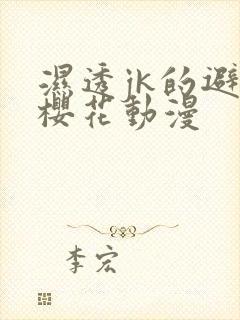 濕透jk的避
櫻花動漫
李宏